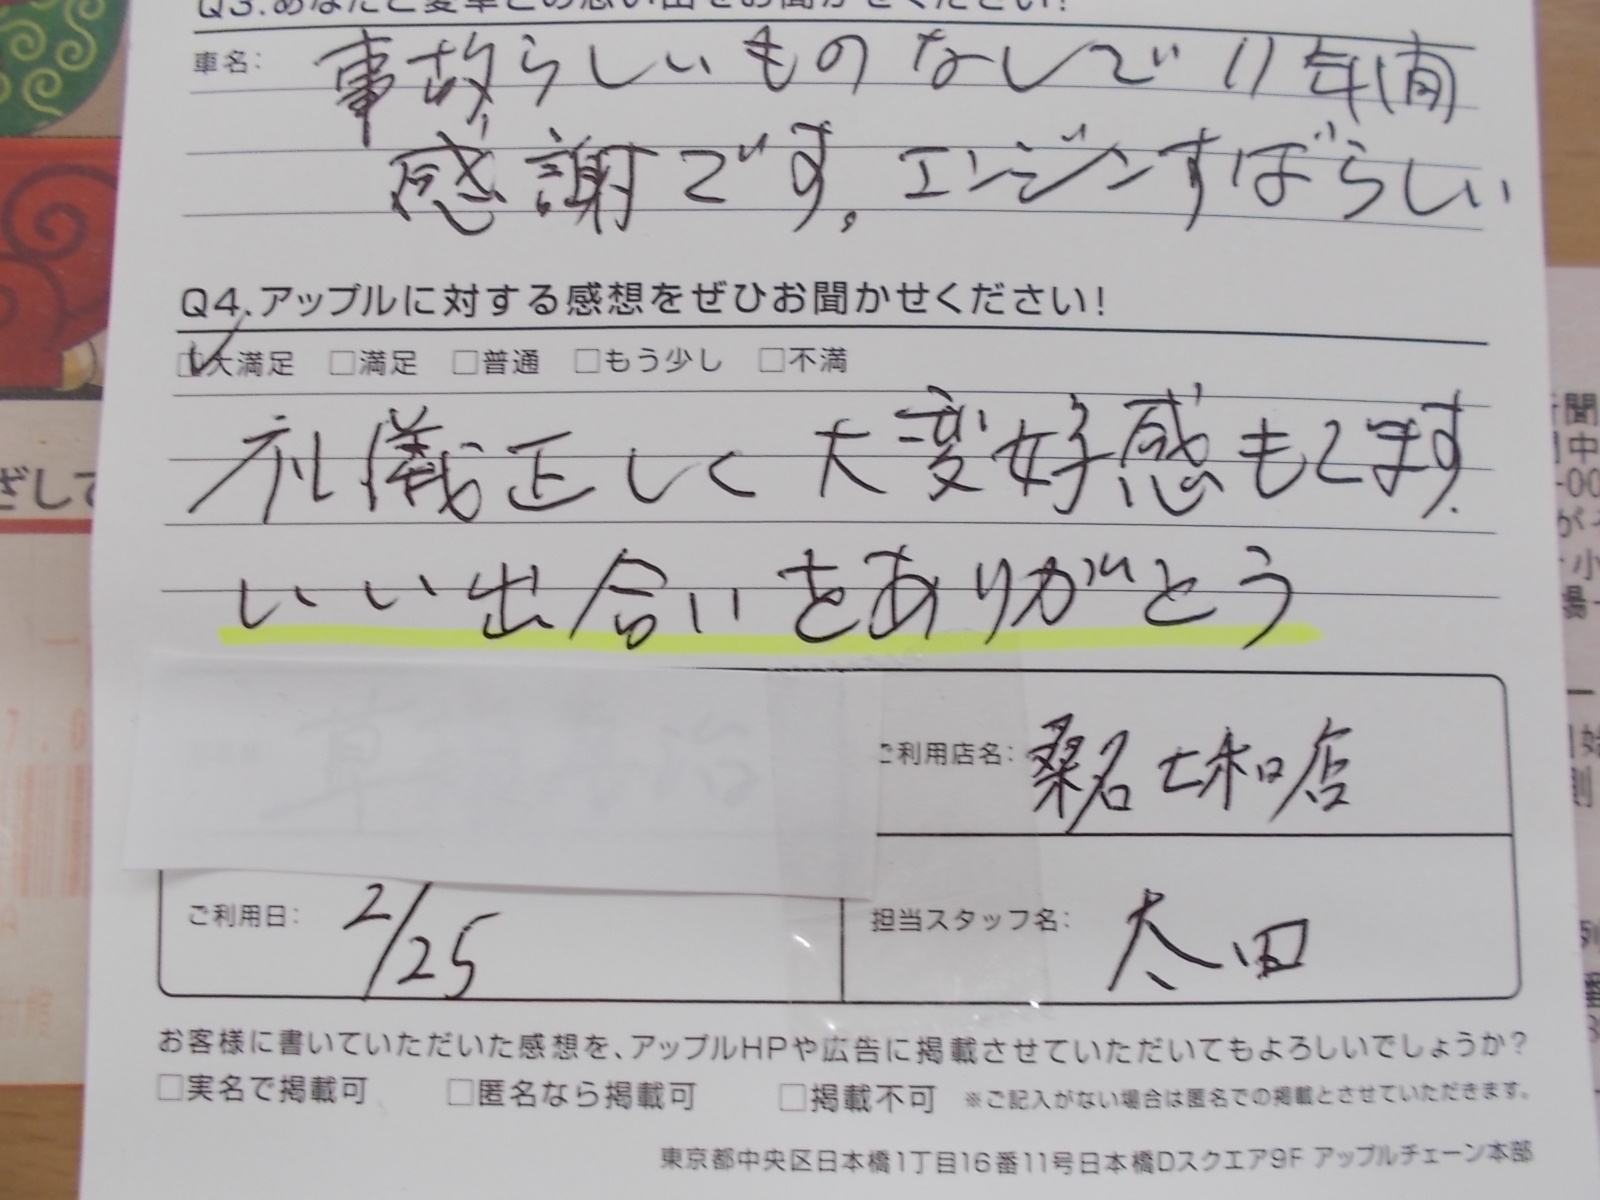 Q3.あなたと愛車との思い出をお聞かせください!
車名: 事故らしいものなしで11年間
感謝です。エンジンすばらしい
Q4.アップルに対する感想をぜひお聞かせください!
☑大満足 □満足 □普通 □もう少し □不満
礼儀正しく大変好感もてます.
いい出合いをありがとう
ご利用店名: 桑名大和店
ご利用日: 2/25 担当スタッフ名: 太田
お客様に書いていただいた感想を、アップルHPや広告に掲載させていただいてもよろしいでしょうか?
□実名で掲載可 □匿名なら掲載可 □掲載不可 ※ご記入がない場合は匿名での掲載とさせていただきます。
東京都中央区日本橋1丁目16番11号日本橋Dスクエア9F アップルチェーン本部
ざして